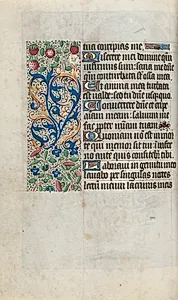 tua corripias me.
Miserere mei domine qm
infirmus sum: sana me dñe
qm conturbata st ossa mea.
Et anima mea turbata
est valde: sed tu dñe usquequo.
Convertere dñe et eripe
aiam meam: salvum me
fac propter miam tuam.
Quoniam nō est in morte
qui memor sit tui: in infer
no autē quis confitebr̄ tibi.
Laboravi in gemitu meo
lavabo per singulas noctes
lectū meum lacrimis meis